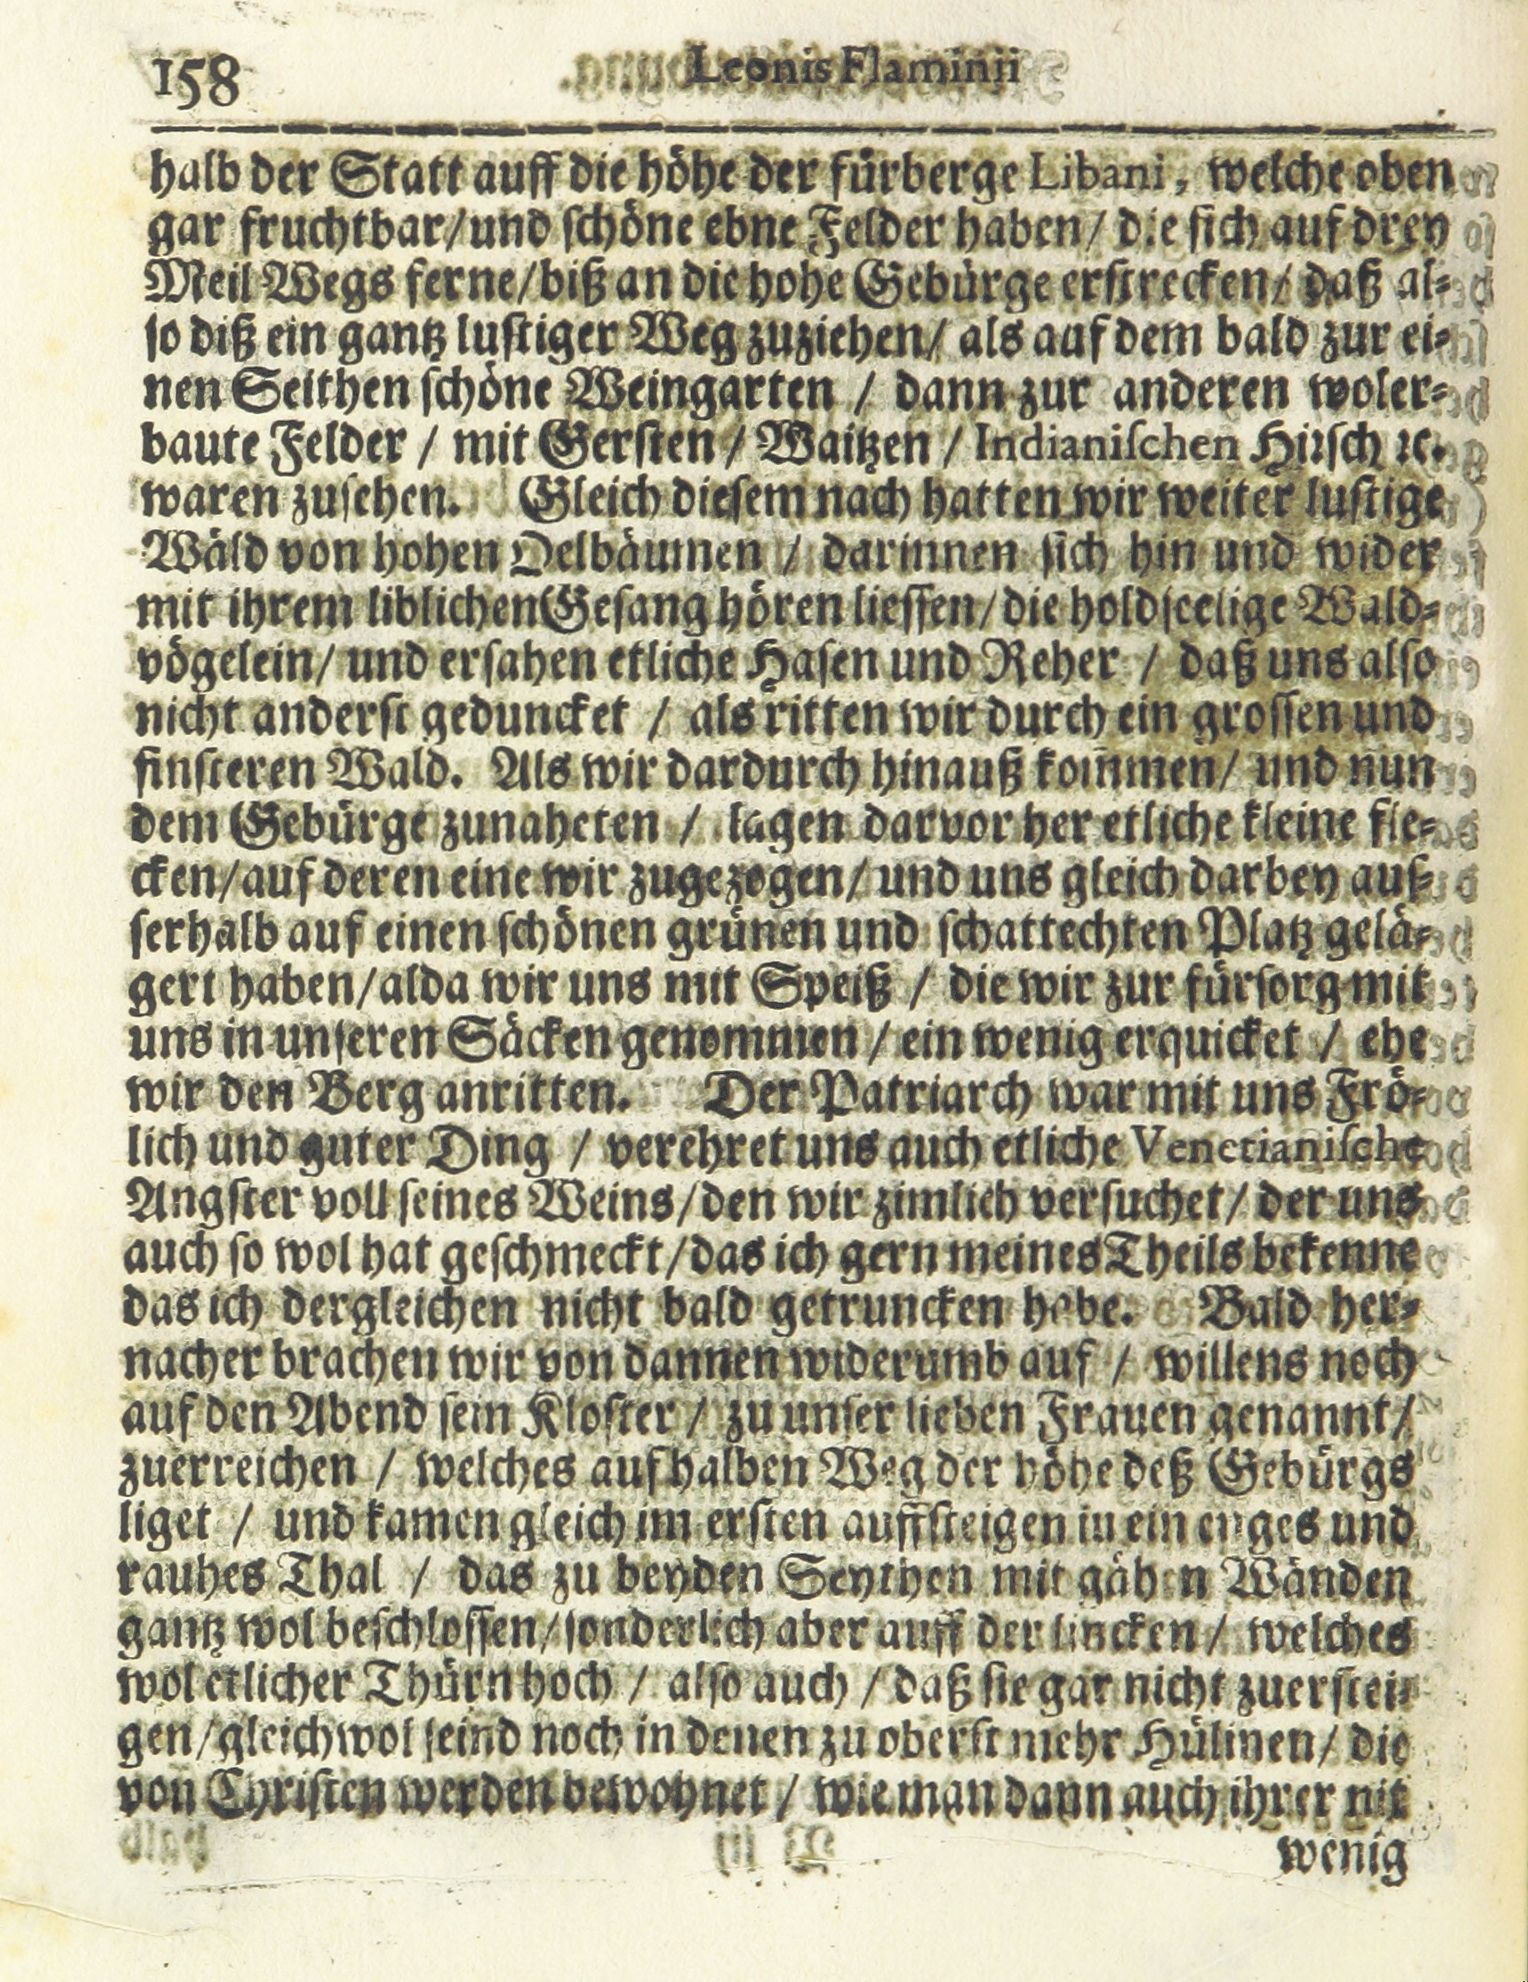 158 Leonis Flaminii
halb der Statt auff die höhe der fürberge Libani, welche oben
gar fruchtbar/und schöne ebne Felder haben/ die sich auf drey
Meil Wegs ferne/biß an die hohe Gebürge erstrecken/ daß al-
so diß ein gantz lustiger Weg zuziehen/ als auf dem bald zur ei-
nen Seithen schöne Weingarten / dann zur anderen woler-
baute Felder / mit Gersten / Waitzen / Indianischen Hirsch ꝛc.
waren zusehen. Gleich diesem nach hatten wir weiter lustige
Wäld von hohen Oelbäumen / darinnen sich hin und wider
mit ihrem liblichen Gesang hören liessen/die holdseelige Wald-
vögelein/ und ersahen etliche Hasen und Reher / daß uns also
nicht anderst geduncket / als ritten wir durch ein grossen und
finsteren Wald. Als wir dardurch hinauß kommen/ und nun
dem Gebürge zunaheten / lagen darvor her etliche kleine fle-
cken/auf deren eine wir zugezogen/ und uns gleich darbey aus-
serhalb auf einen schönen grünen und schattechten Platz gelä-
gert haben/alda wir uns mit Speiß / die wir zur fürsorg mit
uns in unseren Säcken genommen / ein wenig erquicket / ehe
wir den Berg anritten. Der Patriarch war mit uns Frö-
lich und guter Ding / verehret uns auch etliche Venetianische
Angster voll seines Weins/den wir zimlich versuchet/ der uns
auch so wol hat geschmeckt/das ich gern meines Theils bekenne
das ich dergleichen nicht bald getruncken habe. Bald her-
nacher brachen wir von dannen widerumb auf / willens noch
auf den Abend sein Kloster / zu unser lieben Frauen genannt/
zuerreichen / welches auf halben Weg der höhe deß Gebürgs
liget / und kamen gleich im ersten auffsteigen in ein enges und
rauhes Thal / das zu beyden Seythen mit gähen Wänden
gantz wol beschlossen/sonderlich aber auff der lincken / welches
wol etlicher Thürn hoch / also auch / daß sie gar nicht zuerstei-
gen/gleichwol seind noch in denen zu oberst mehr Hülinen/ die
von Christen werden bewohnet / wie man dann auch ihrer nit
wenig